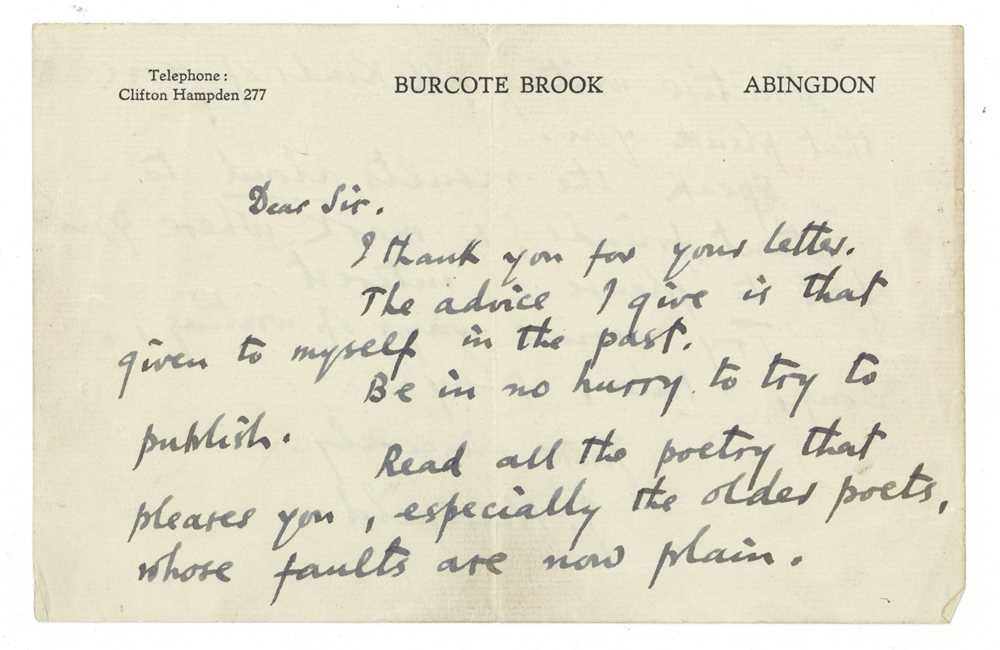 Telephone:
Clifton Hampden 277
BURCOTE BROOK
ABINGDON
Dear Sir.
I thank you for your letter.
The advice I give is that
given to myself in the past.
Be in no hurry to try to
publish.
Read all the poetry that
pleases you, especially the older poets,
whose faults are now plain.